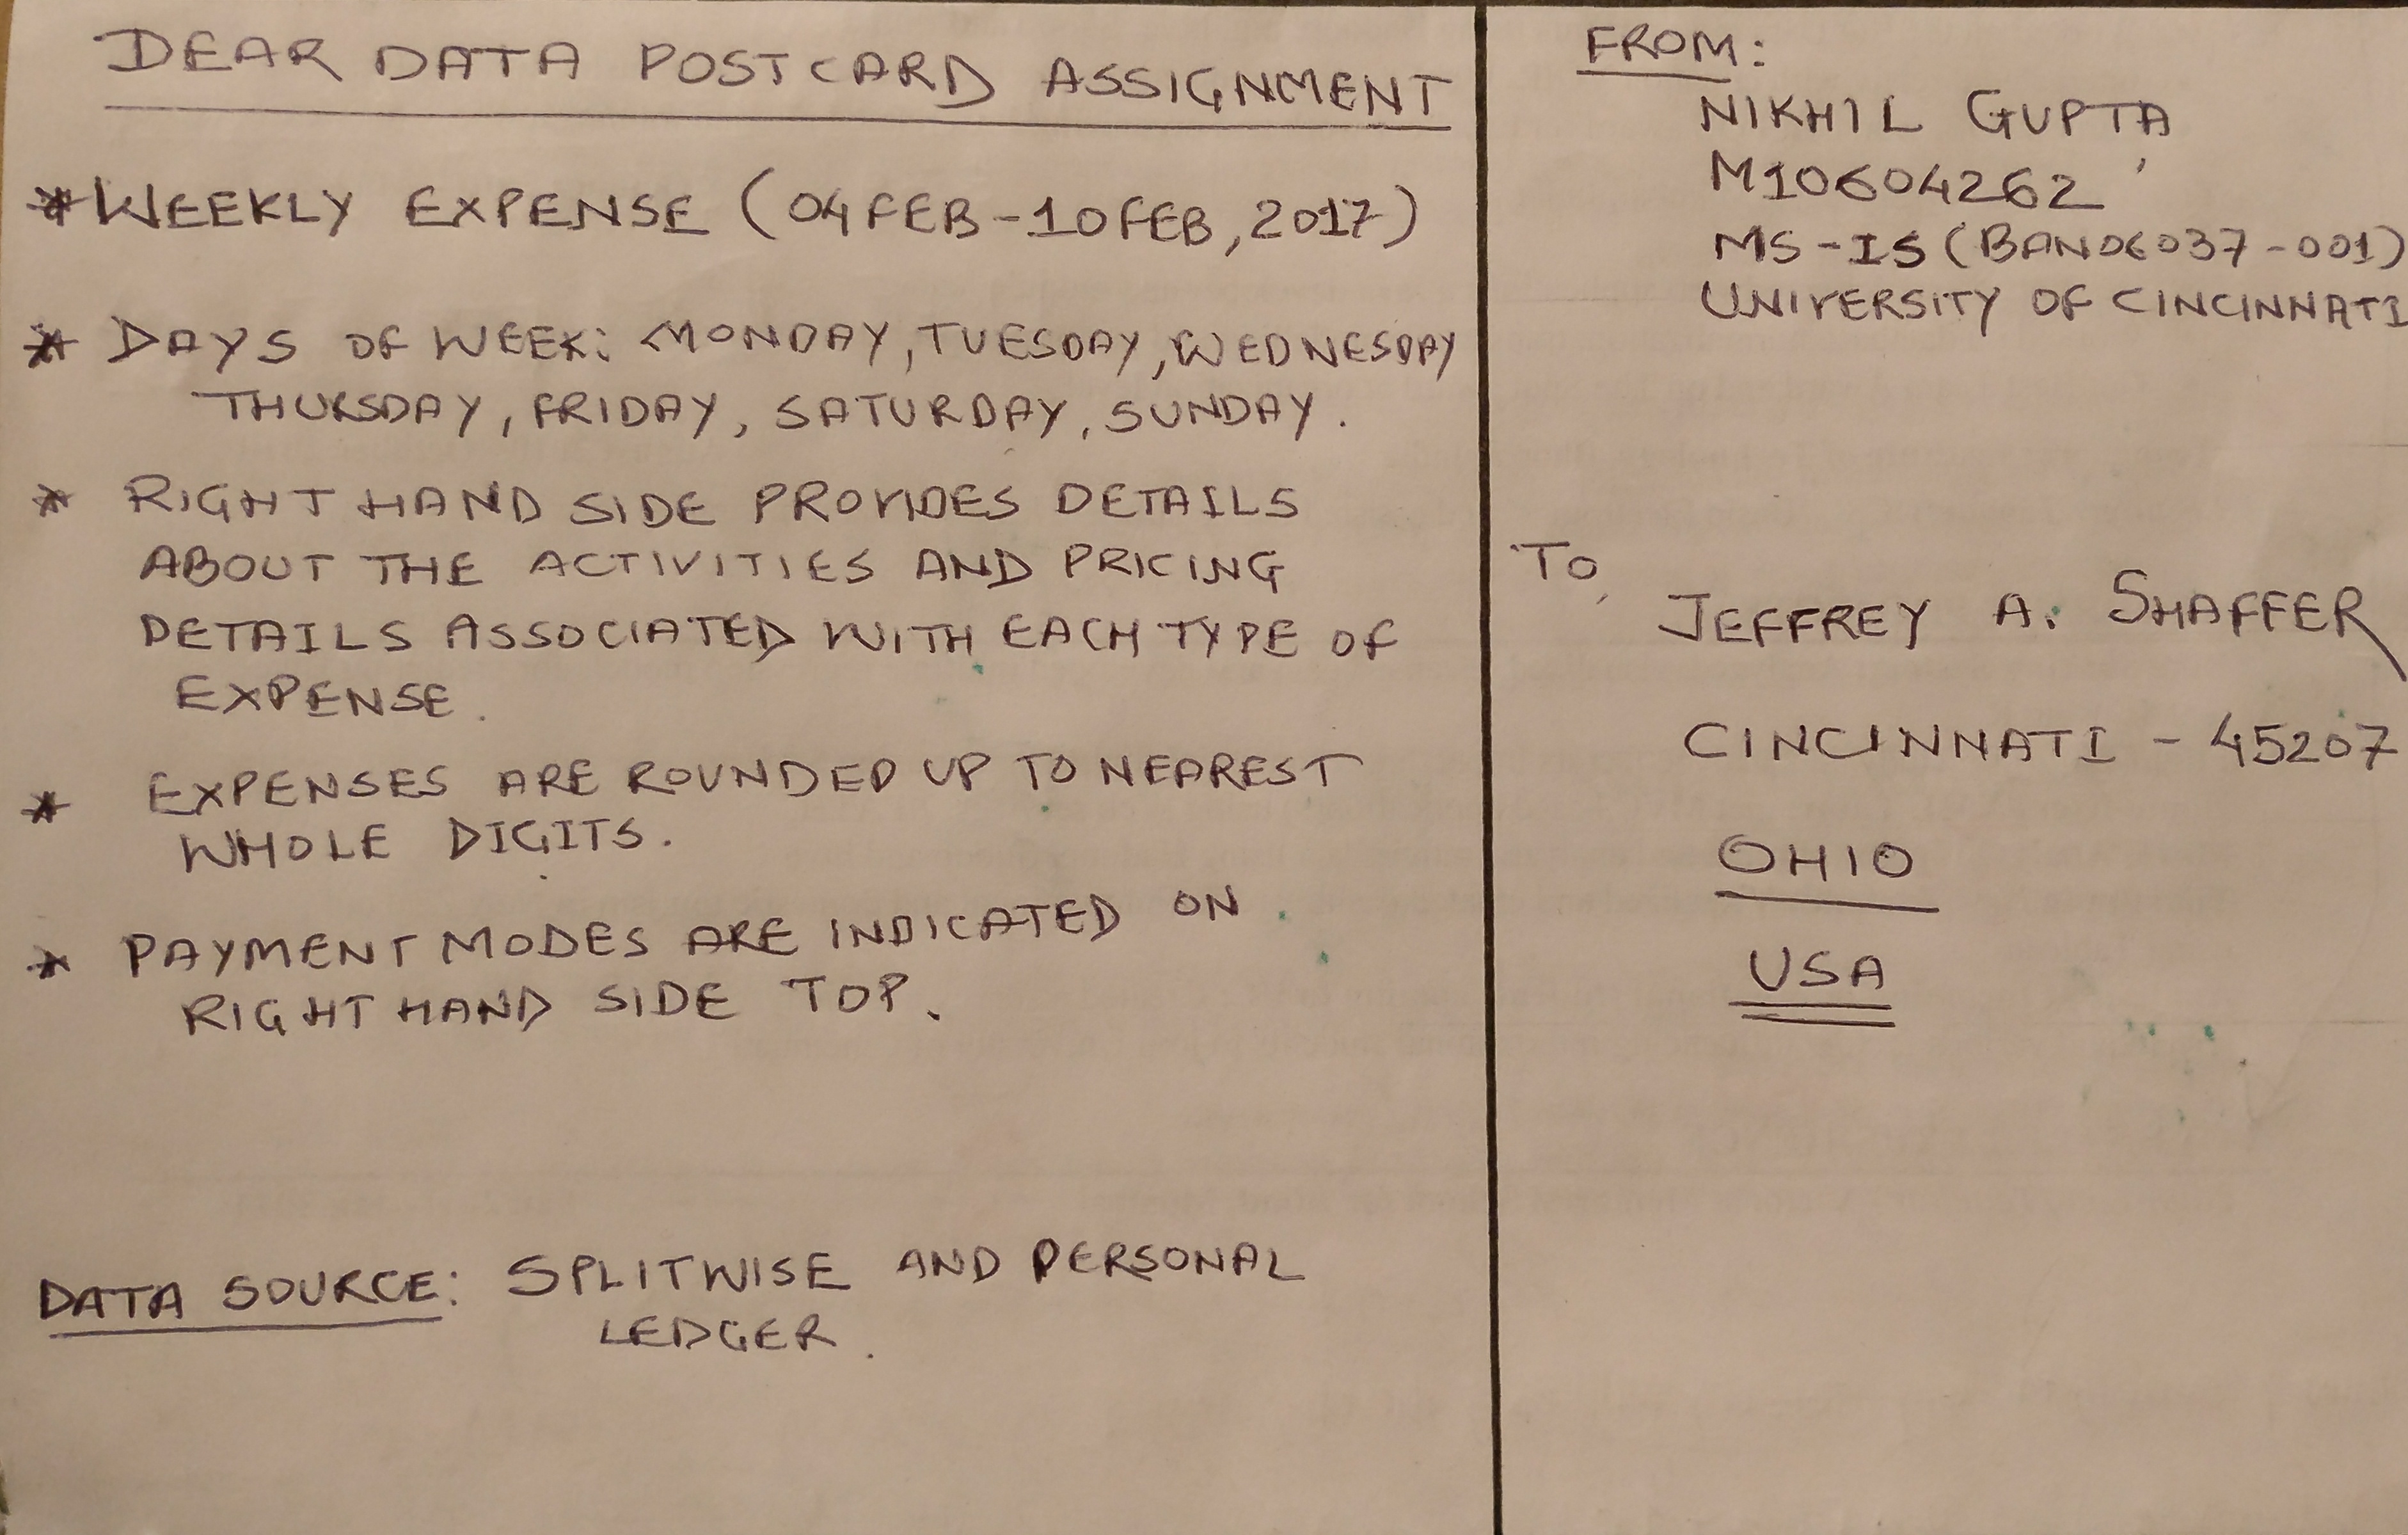 DEAR DATA POSTCARD ASSIGNMENT
* WEEKLY EXPENSE (04 FEB - 10 FEB, 2017)
* DAYS OF WEEK: MONDAY, TUESDAY, WEDNESDAY
THURSDAY, FRIDAY, SATURDAY, SUNDAY.
* RIGHT HAND SIDE PROVIDES DETAILS
ABOUT THE ACTIVITIES AND PRICING
DETAILS ASSOCIATED WITH EACH TYPE OF
EXPENSE.
* EXPENSES ARE ROUNDED UP TO NEAREST
WHOLE DIGITS.
* PAYMENT MODES ARE INDICATED ON
RIGHT HAND SIDE TOP.
DATA SOURCE: SPLITWISE AND PERSONAL
LEDGER.
FROM:
NIKHIL GUPTA
M10604262
MS-IS (BANA6037-001)
UNIVERSITY OF CINCINNATI
TO,
JEFFREY A. SHAFFER
CINCINNATI - 45207
OHIO
USA